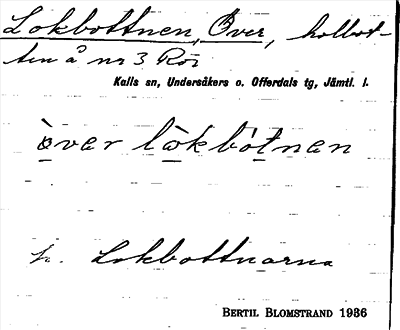 Lokbottnen, Över, holbot-
ten å nr 3 Röi
Kalls sn, Undersåkers o. Offerdals tg, Jämtl. l.
òvar lòkbótnan
h. Lokbottnarna
BERTIL BLOMSTRAND 1936